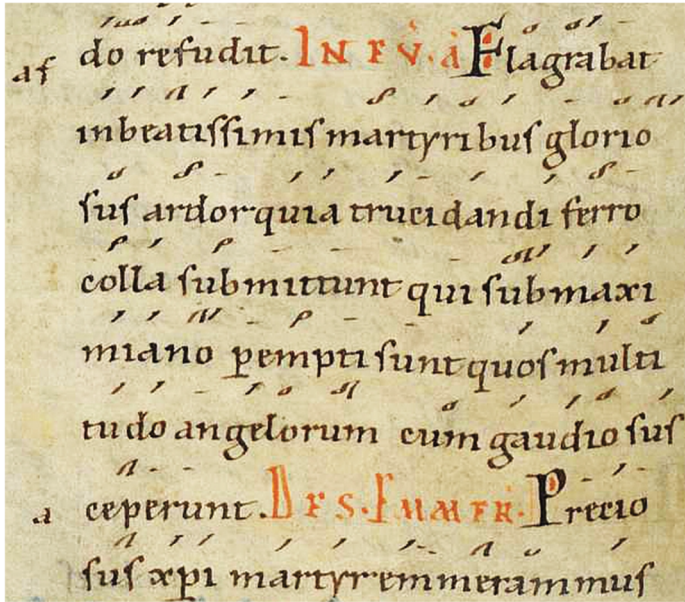 do refudit. IN EV. A Flagrabat
af
inbeatissimis martyribus glorio
sus ardor quia trucidandi ferro
colla submittunt qui submaxi
miano ꝑempti sunt quos multi
tudo angelorum cum gaudio sus
a ceperunt. Precio
sus xp̄i martyr emmerammus